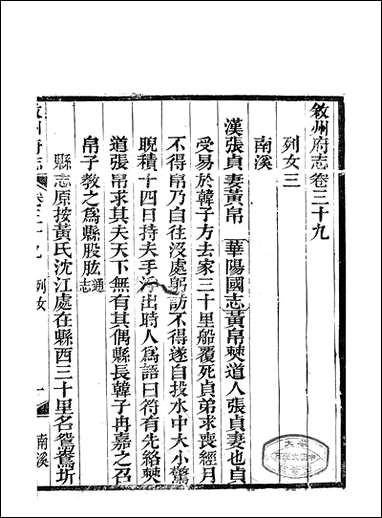 敘州府志卷三十九
列女三
南溪
漢張貞妻黃帛 華陽國志黃帛僰道人張貞妻也貞
受易於韓子方去家三十里船覆死貞弟求喪經月
不得帛乃自往沒處躬訪不得遂自投水中大小驚
睨積十四日持夫手浮出時人為語曰符有先絡僰
道張帛求其夫天下無有其偶縣長韓子冉嘉之召
帛子教之為縣股肱通志
縣志原按黃氏沈江處在縣西三十里名鴛鴦圻
敘州府志 卷三十九 列女 一 南溪